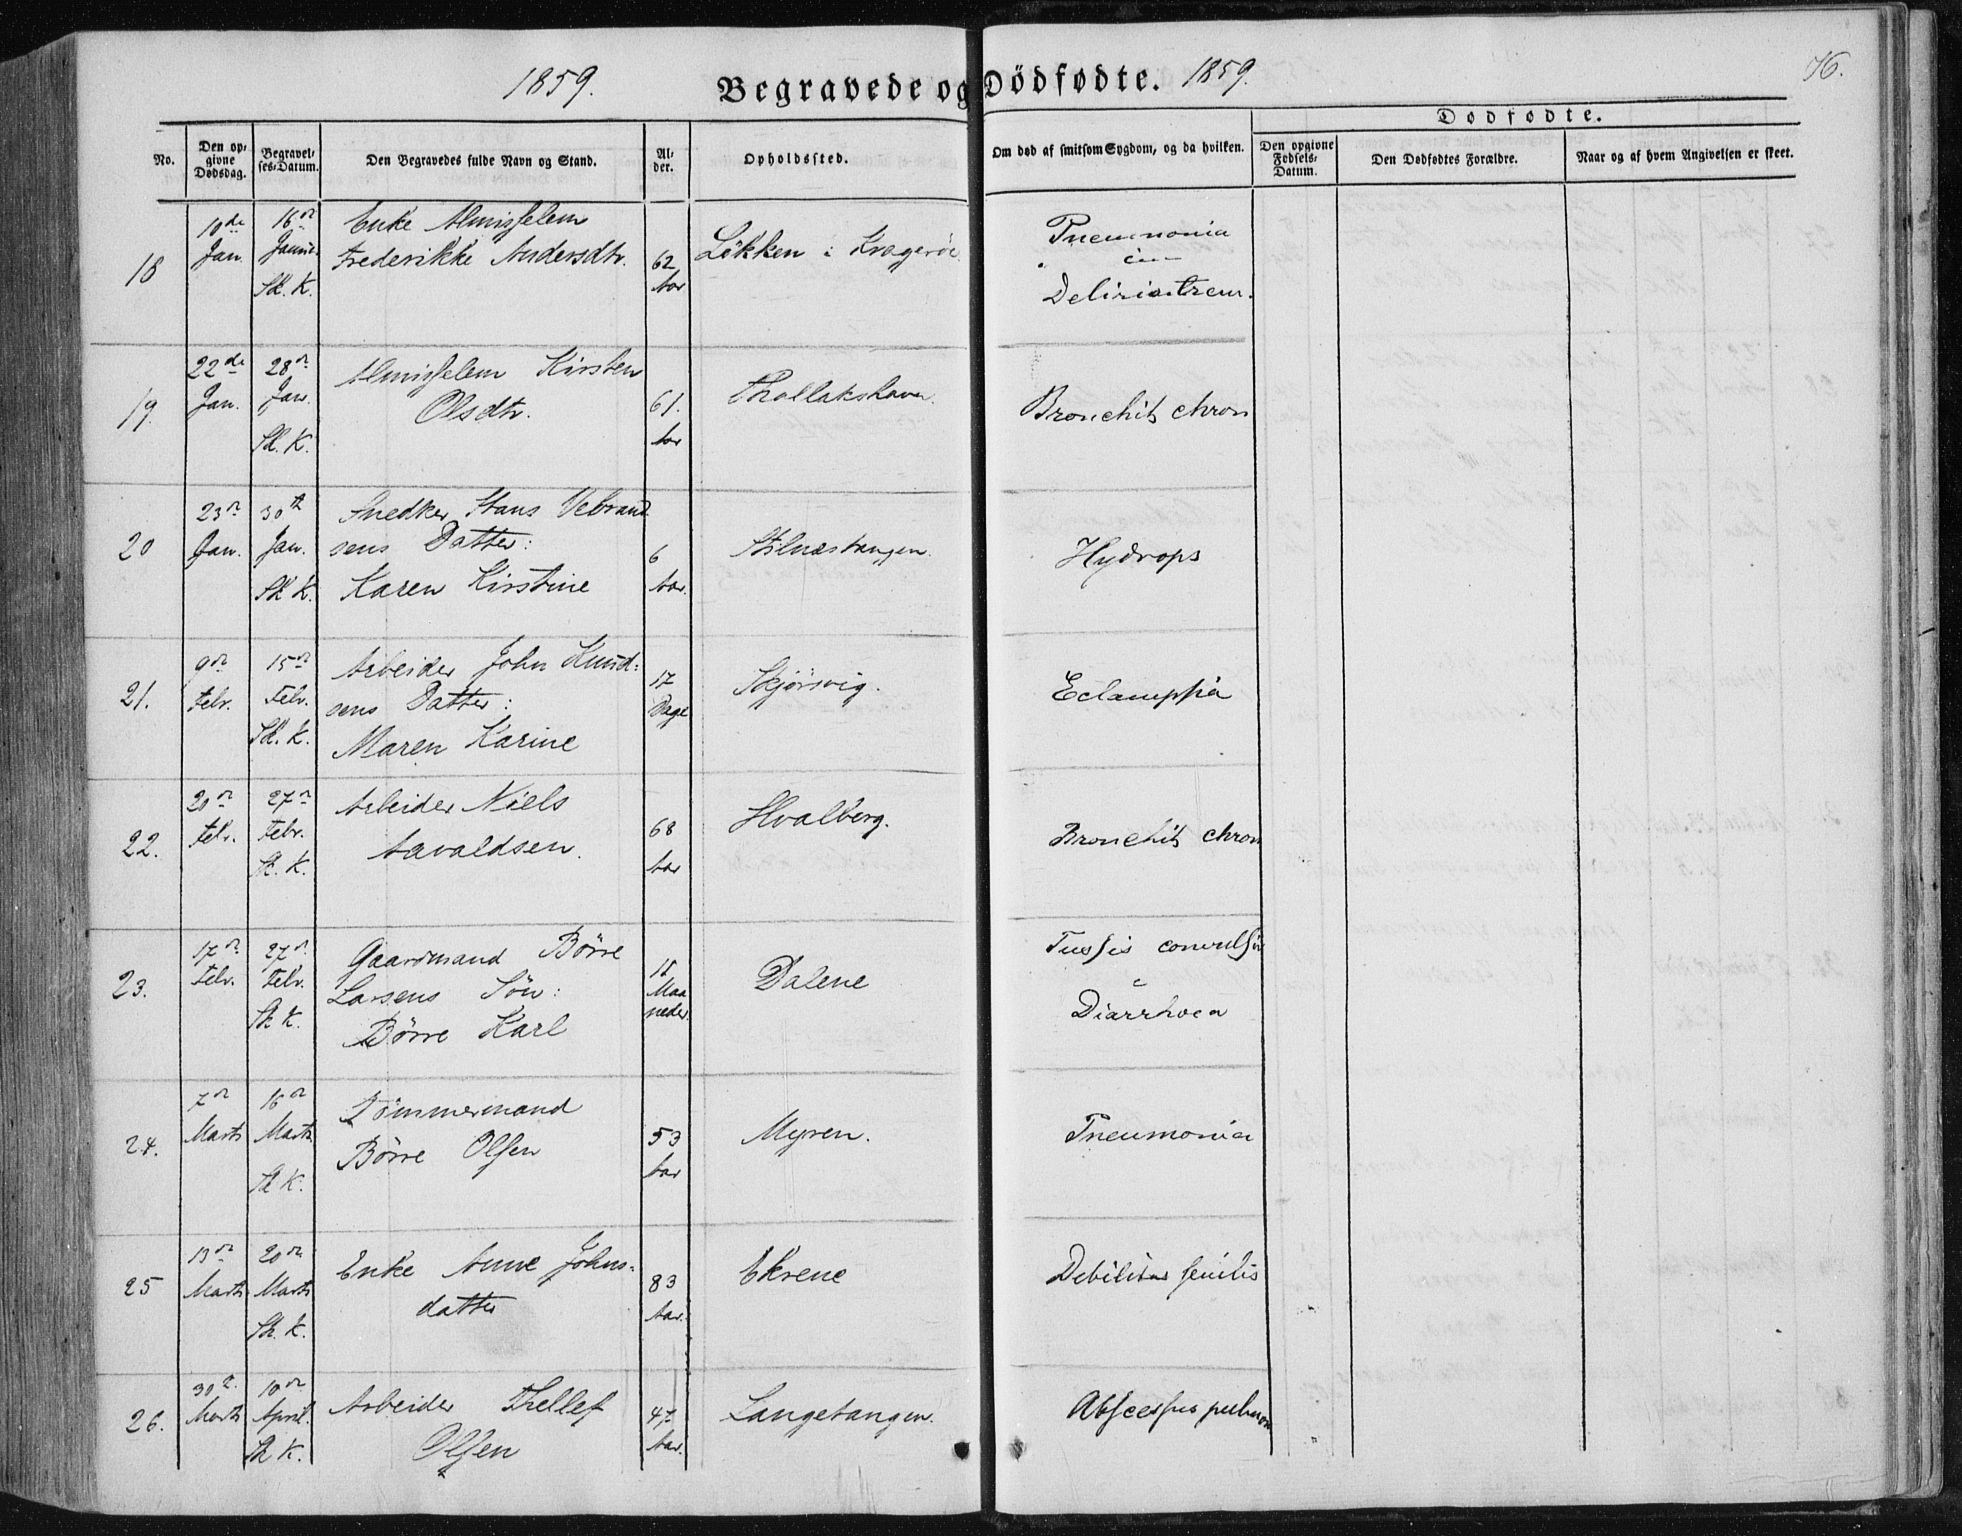 1859.
Begravede og Dödfødte. 1859.
76.
No.
Den opgivne Dødsdag.
Begravelses-Datum.
Den Begravedes fulde Navn og Stand.
Alder.
Opholdssted.
Om død af smitsom Sygdom, og da hvilken.
Dødfødte.
Den opgivne Fødsels-Datum.
Den Dødfødtes Forældre.
Naar og af hvem Angivelsen er skeet.
18
10de Jan.
16de Januar Sk. K.
Enke Almisselem
Frederikke Andersdtr.
62 Aar
Løkken i Kragerøe
Pneumonia
cum
Delirio trem.
19.
22de Jan.
28de Jan. Sk. K.
Almisselem Kirsten
Olsdtr.
61. Aar
Thollakshavn.
Bronchit chron
20
23de Jan.
30te Jan. Sk K.
Snedker Hans Vebrand
sens Datter:
Karen Kirstine
6 Aar.
Stilnestangen.
Hydrops
21.
9de Febr.
15de Febr. Sk. K.
Arbeider John Knud-
sens Datter:
Maren Karine
17 Dage
Skjørsvig.
Eclampsia
22.
20de Febr.
27de Febr. Sk. K.
Arbeider Niels
Aavaldsen.
68 Aar
Hvalberg.
Bronchit chron
23.
17de Febr.
27de Febr. Sk K.
Gaardmand Börre
Larsens Sön:
Börre Karl
Maaneder.
Dalene
Tussis convulsiv
c
Diarrhoea
24.
7de Marts
16de Marts Sk K.
Tömmermand
Börre Olsen
53 Aar
Myren.
Pneumonia
25
13de Marts
20de Marts Sk. K.
Enke Anne Johns-
datter
83 Aar.
Ekrene
Debilitas senilis
26.
30te Marts
10de April. Sk K.
Arbeider Thellef
Olsen
47 Aar.
Langetangen.
Abscessus pulmon